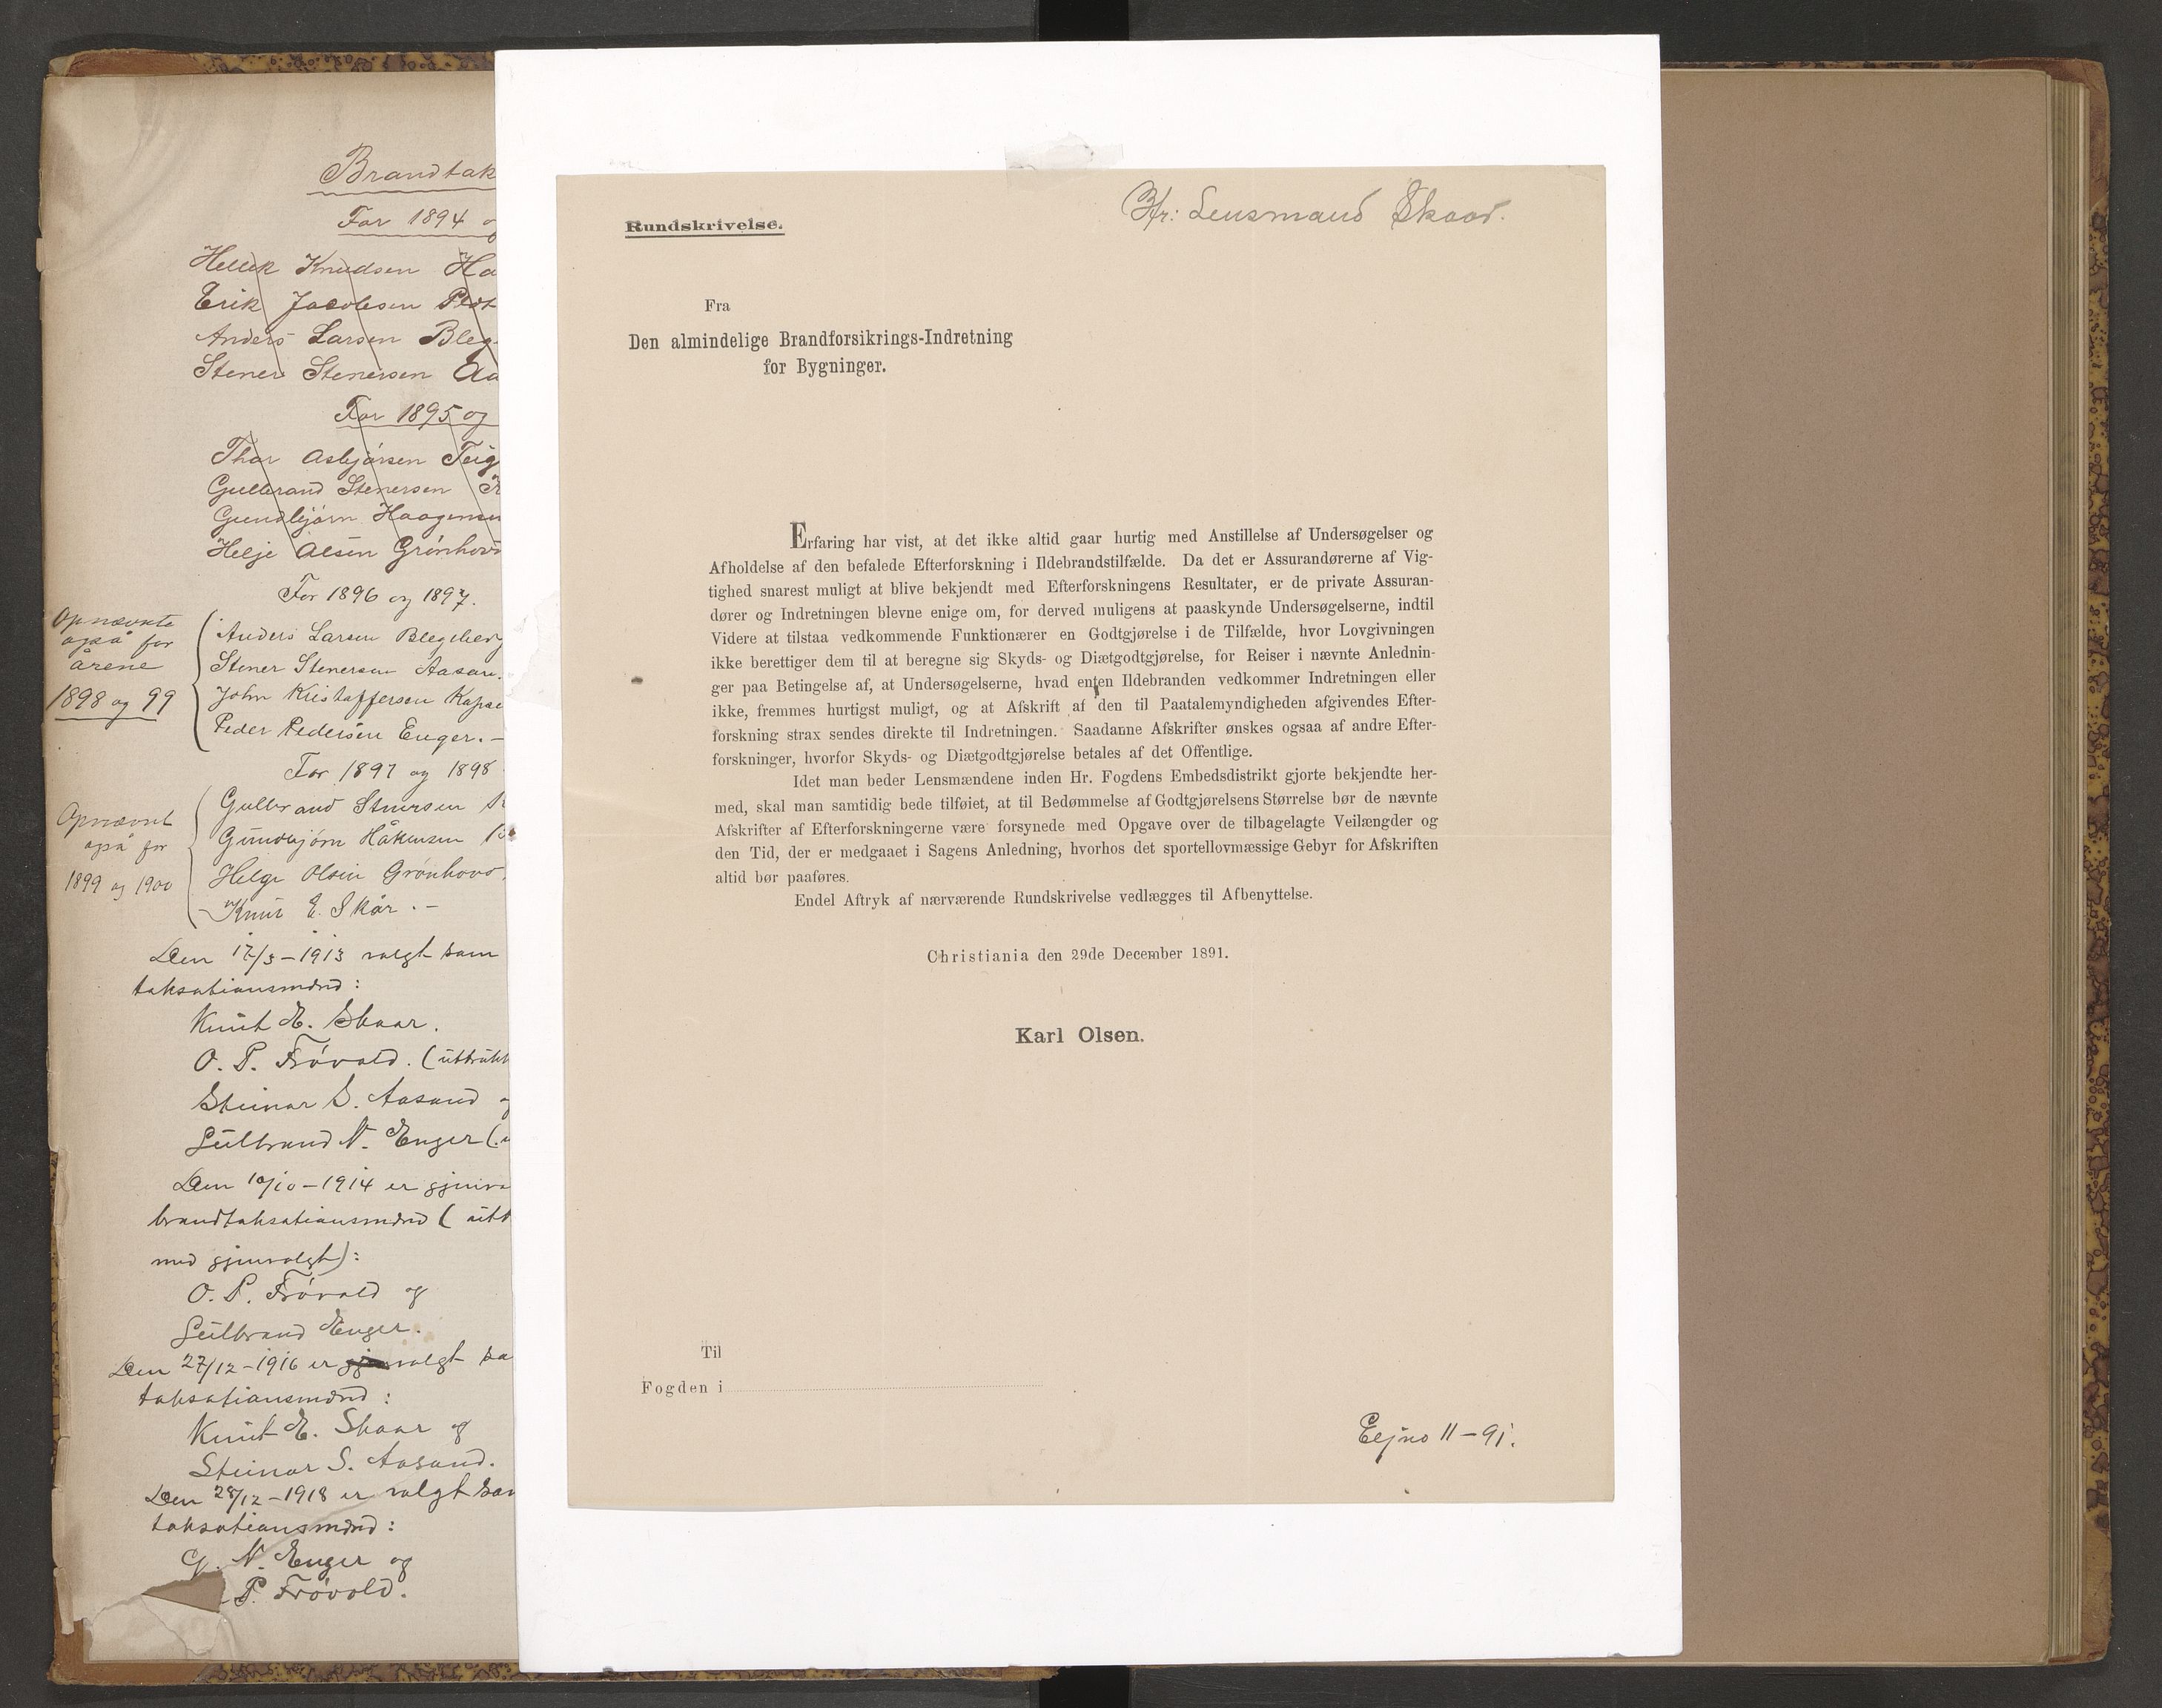 Brandtak
For 1894 o
Hellik Knudsen Ha
Erik Jacobsen
Anders Larsen Bleg
Stener Stenersen Aa
For 1895 og
Thor Asbjörsen Teig
Gulbrand Stenersen
Gundbjörn Haagensen
Helje Olsen Grönhovd
For 1896 og 1897.
Opnævnte
også for
årene
1898 og 99
Anders Larsen Blegeberg
Stener Stenersen Aasan.
John Kristoffersen
Peder Pedersen Enger. —
For 1897 og 1898
Opnævnt
også for
1899 og 1900
Gulbrand Stenersen
Gundbjörn Håkensen
Helge Olsen Grönhovd.
Knut E. Skår. —
Den 17/3 – 1913 valgt som
taksationsmænd:
Knut E. Skaar.
O. P. Frövold. (uttrukk
Steinar S. Aasand
Gulbrand N. Enger (
Den 10/10 – 1914 er gjenva
brandtaksationsmænd ( utt
med gjenvalgt):
O. P. Frövold og
Gulbrand Enger.
Den 27/12 – 1916 er valgt so
taksationsmænd:
Knut E. Skaar og
Steinar S. Aasand.
Den 28/12 – 1918 er valgt som
taksationsmænd:
G. N. Enger og
P. Frövold.
Hr: Lensmand Skaar.
Rundskrivelse.
Fra
Den almindelige Brandforsikrings-Indretning
for Bygninger.
Erfaring har vist, at det ikke altid gaar hurtig med Anstillelse af Undersøgelser og
Afholdelse af den befalede Efterforskning i Ildebrandstilfælde. Da det er Assurandørerne af Vig-
tighed snarest muligt at blive bekjendt med Efterforskningens Resultater, er de private Assuran-
dører og Indretningen blevne enige om, for derved muligens at paaskynde Undersøgelserne, indtil
Videre at tilstaa vedkommende Funktionærer en Godtgjørelse i de Tilfælde, hvor Lovgivningen
ikke berettiger dem til at beregne sig Skyds- og Diætgodtgjørelse, for Reiser i nævnte Anlednin-
ger paa Betingelse af, at Undersøgelserne, hvad enten Ildebranden vedkommer Indretningen eller
ikke, fremmes hurtigst muligt, og at Afskrift af den til Paatalemyndigheden afgivendes Efter-
forskning strax sendes direkte til Indretningen. Saadanne Afskrifter ønskes ogsaa af andre Efter-
forskninger, hvorfor Skyds- og Diætgodtgjørelse betales af det Offentlige.
Idet man beder Lensmændene inden Hr. Fogdens Embedsdistrikt gjorte bekjendte her-
med, skal man samtidig bede tilføiet, at til Bedømmelse af Godtgjørelsens Størrelse bør de nævnte
Afskrifter af Efterforskningerne være forsynede med Opgave over de tilbagelagte Veilængder og
den Tid, der er medgaaet i Sagens Anledning, hvorhos det sportellovmæssige Gebyr for Afskriften
altid bør paaføres.
Endel Aftryk af nærværende Rundskrivelse vedlægges til Afbenyttelse.
Christiania den 29de December 1891.
Karl Olsen.
Til
Fogden i
11 – 91.